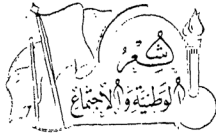 شِعْرُ
الوَطنيّة وَالاجتمَاع